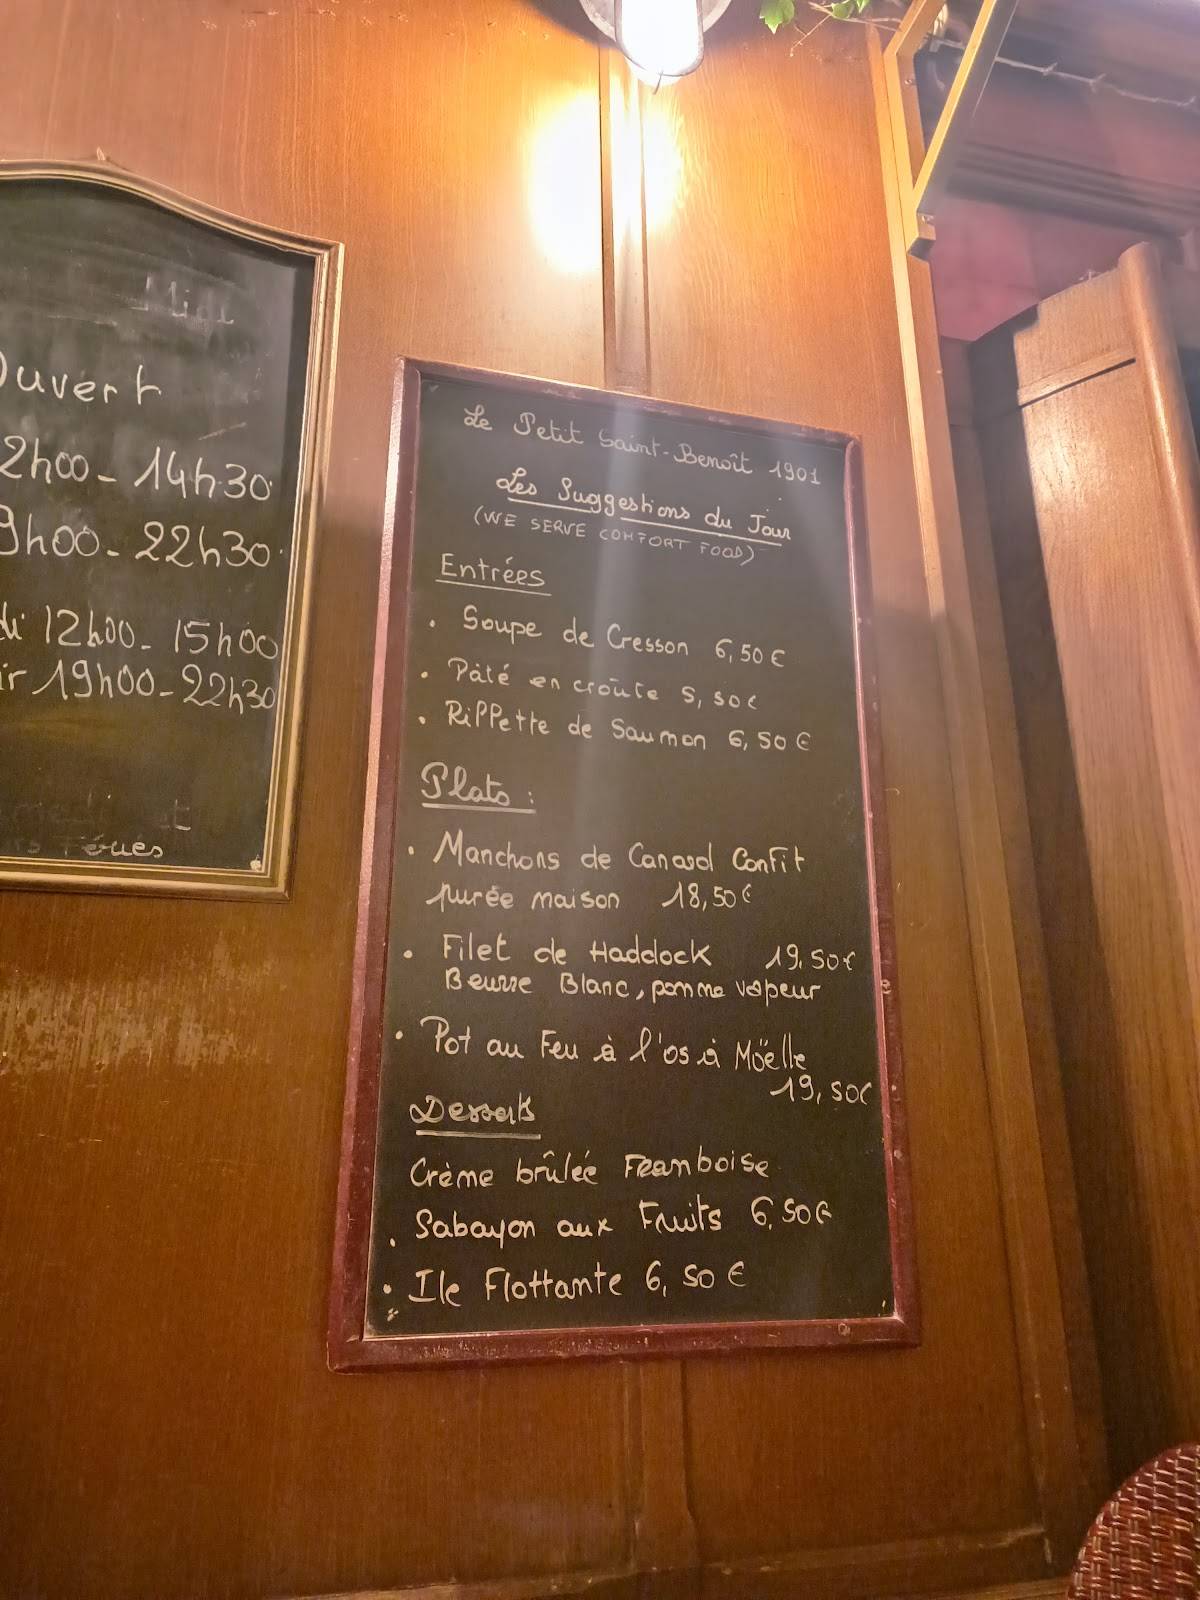 Midi
Ouvert
2h00 - 14h30
9h00 - 22h30
di 12h00 - 15h00
ir 19h00 - 22h30
Fériés
Le Petit Saint-Benoît 1901
Les Suggestions du Jour
(WE SERVE COMFORT FOOD)
Entrées
• Soupe de Cresson 6,50€
• Pâté en croûte 5,50€
• Rillette de Saumon 6,50€
Plats :
• Manchons de Canard Confit
purée maison 18,50€
• Filet de Haddock 19,50€
Beurre Blanc, pomme vapeur
• Pot au Feu à l'os à Möelle
19,50€
Desserts
Crème brûlée Framboise
• Sabayon aux Fruits 6,50€
• Ile Flottante 6,50€